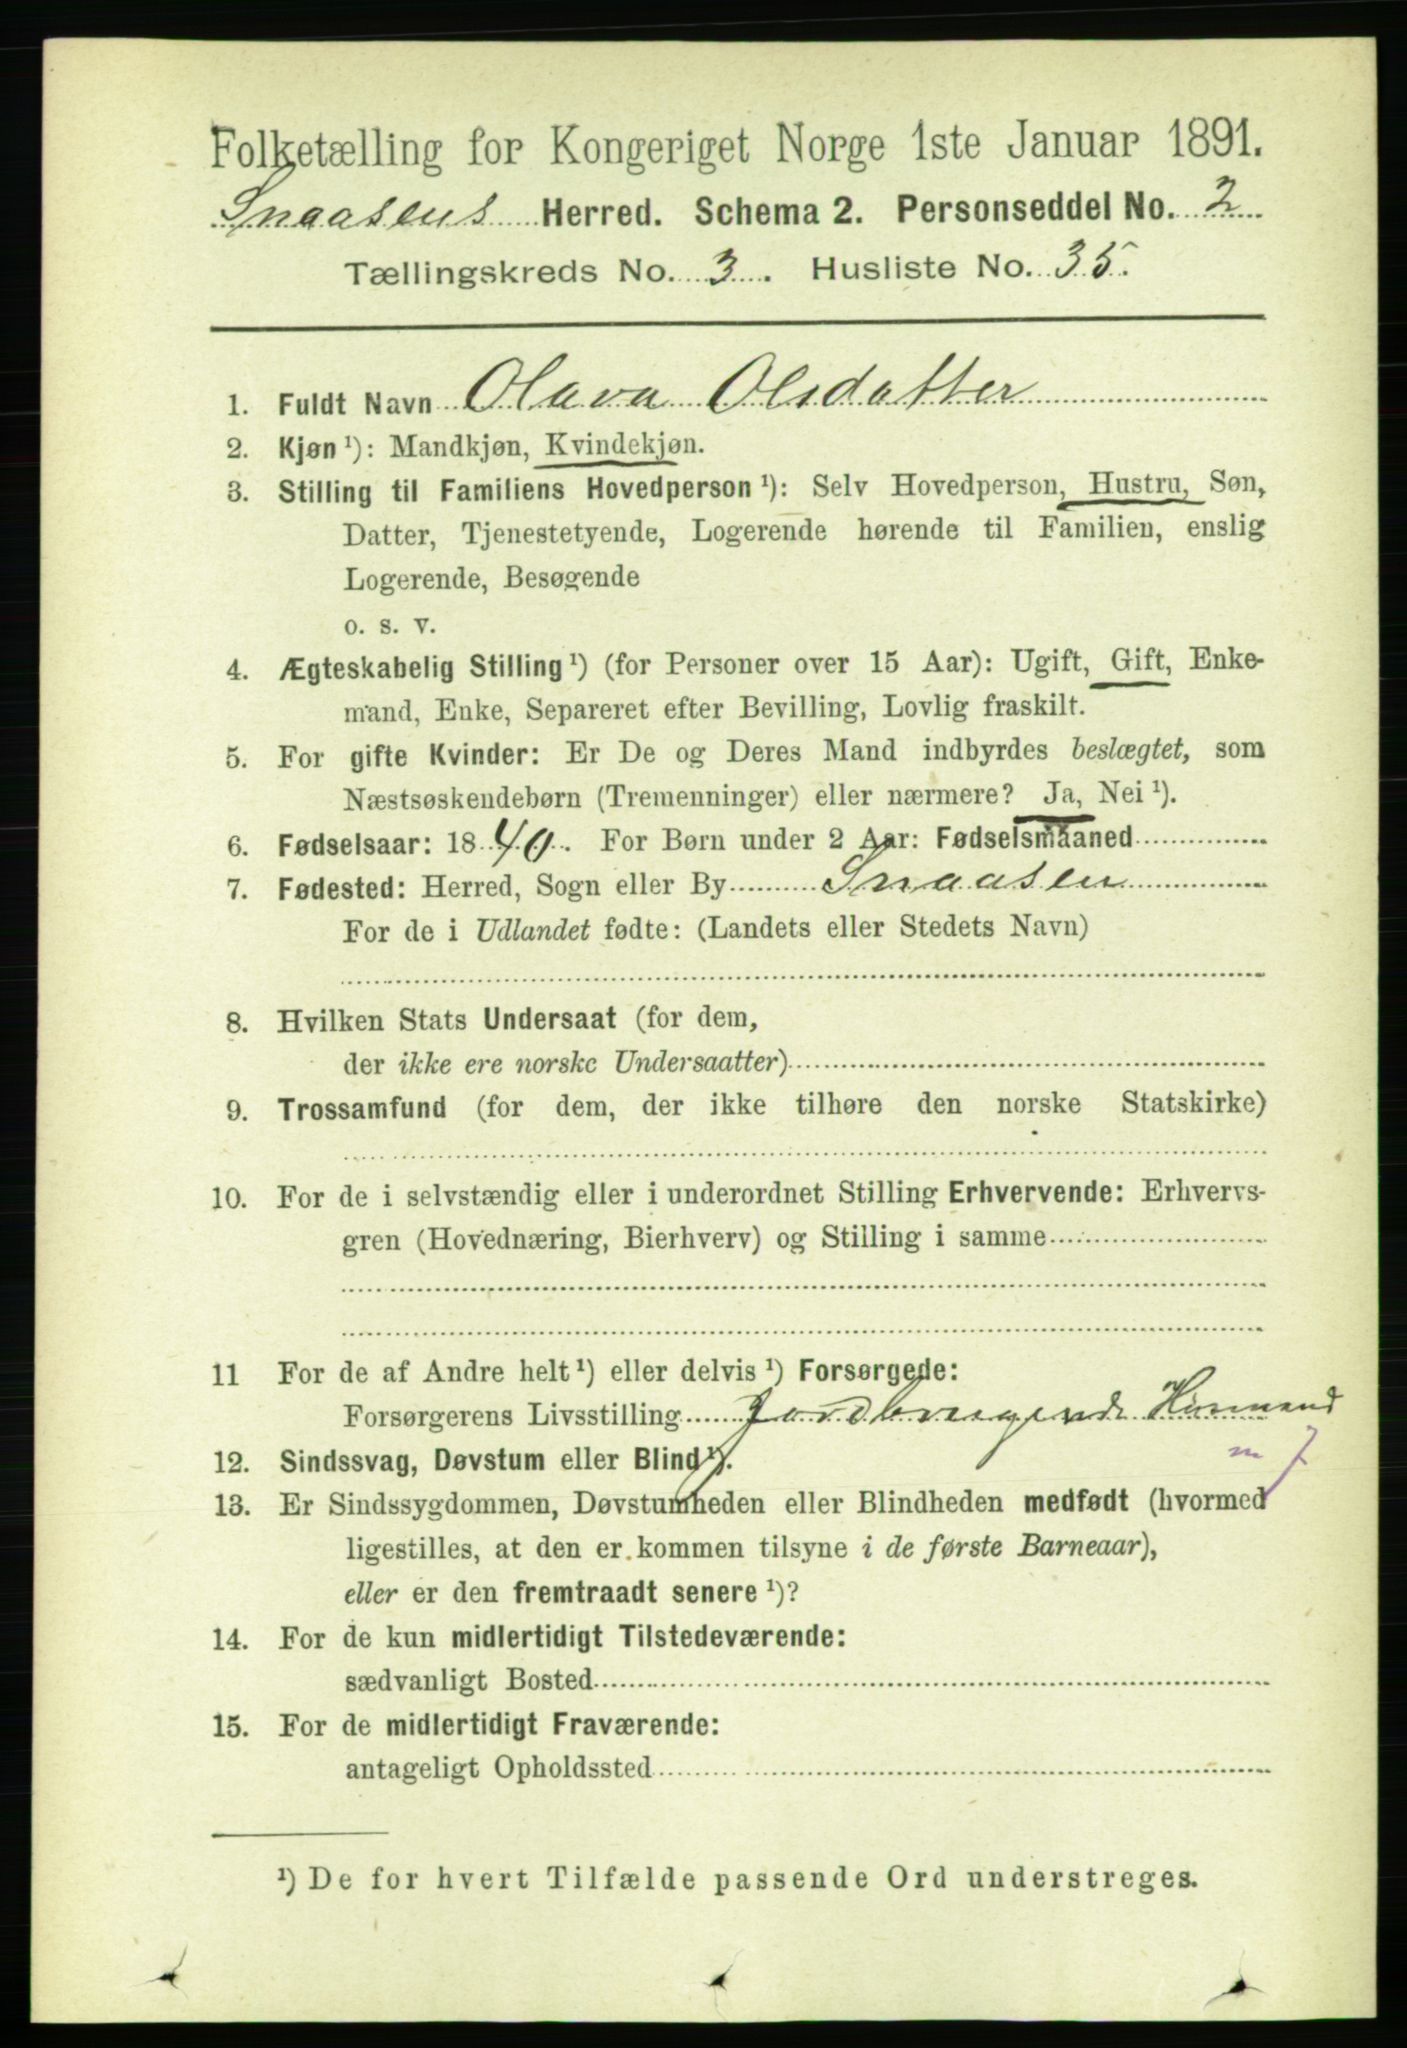 Folketælling for Kongeriget Norge 1ste Januar 1891.
Snaasens Herred. Schema 2. Personseddel No. 2
Tællingskreds No. 3. Husliste No. 35.
1. Fuldt Navn Olava Olsdatter
2. Kjøn ¹): Mandkjøn, Kvindekjøn.
3. Stilling til Familiens Hovedperson ¹): Selv Hovedperson, Hustru, Søn,
Datter, Tjenestetyende, Logerende hørende til Familien, enslig
Logerende, Besøgende
o. s. v.
4. Ægteskabelig Stilling ¹) (for Personer over 15 Aar): Ugift, Gift, Enke-
mand, Enke, Separeret efter Bevilling, Lovlig fraskilt.
5. For gifte Kvinder: Er De og Deres Mand indbyrdes beslægtet, som
Næstsøskendebørn (Tremenninger) eller nærmere? Ja, Nei ¹).
6. Fødselsaar: 1840. For Børn under 2 Aar: Fødselsmaaned
7. Fødested: Herred, Sogn eller By Snaasen
For de i Udlandet fødte: (Landets eller Stedets Navn)
8. Hvilken Stats Undersaat (for dem,
der ikke ere norske Undersaatter)
9. Trossamfund (for dem, der ikke tilhøre den norske Statskirke)
10. For de i selvstændig eller i underordnet Stilling Erhvervende: Erhvervs-
gren (Hovednæring, Bierhverv) og Stilling i samme
11 For de af Andre helt ¹) eller delvis ¹) Forsørgede:
Forsørgerens Livsstilling Jordbrugende Husmand
m
12. Sindssvag, Døvstum eller Blind ¹).
13. Er Sindssygdommen, Døvstumheden eller Blindheden medfødt (hvormed
ligestilles, at den er kommen tilsyne i de første Barneaar),
eller er den fremtraadt senere ¹)?
14. For de kun midlertidigt Tilstedeværende:
sædvanligt Bosted
15. For de midlertidigt Fraværende:
antageligt Opholdssted
¹) De for hvert Tilfælde passende Ord understreges.